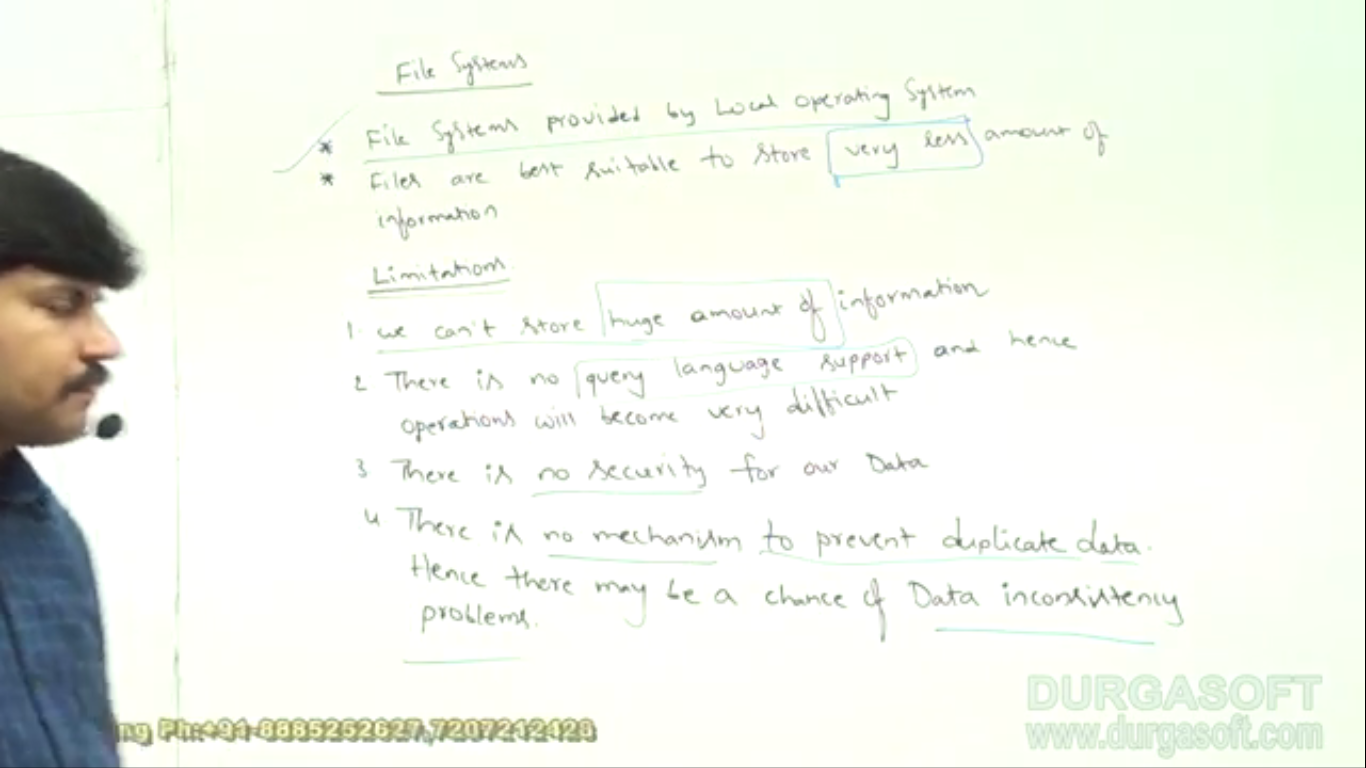 File Systems
* File Systems provided by Local Operating System
* Files are best suitable to store very less amount of
information
Limitations
1. we can't store huge amount of information
2 There is no query language support and hence
operations will become very difficult
3 There is no security for our Data
4 There is no mechanism to prevent duplicate data.
Hence there may be a chance of Data inconsistency
problems.
DURGASOFT
ng Ph:+91-8885252627,7207212428
www.durgasoft.com